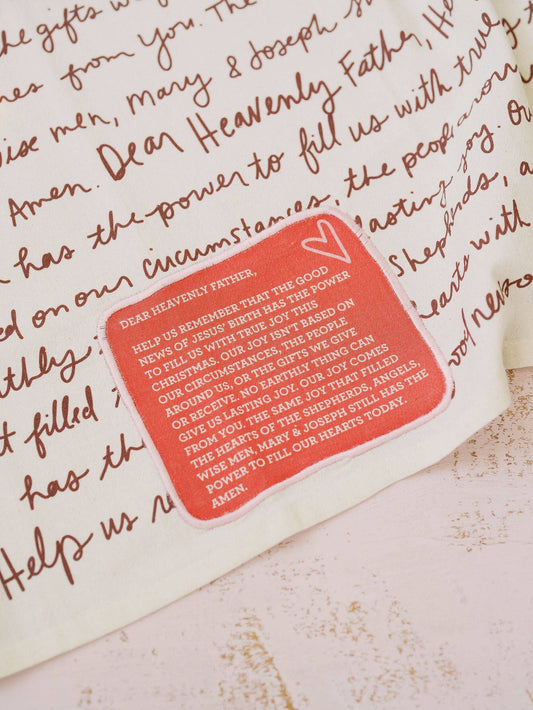 the gifts we
es from you. The
ise men, Mary & Joseph s
Amen. Dear Heavenly Father, He
has the power to fill us with true
ed on our circumstances, the people aroun
lasting joy. Ou
thly Shepherds, a
t filled hearts with
has th ood news o
Help us r
DEAR HEAVENLY FATHER,
HELP US REMEMBER THAT THE GOOD
NEWS OF JESUS' BIRTH HAS THE POWER
TO FILL US WITH TRUE JOY THIS
CHRISTMAS. OUR JOY ISN'T BASED ON
OUR CIRCUMSTANCES, THE PEOPLE
AROUND US, OR THE GIFTS WE GIVE
OR RECEIVE. NO EARTHLY THING CAN
GIVE US LASTING JOY. OUR JOY COMES
FROM YOU. THE SAME JOY THAT FILLED
THE HEARTS OF THE SHEPHERDS, ANGELS,
WISE MEN, MARY & JOSEPH STILL HAS THE
POWER TO FILL OUR HEARTS TODAY.
AMEN.